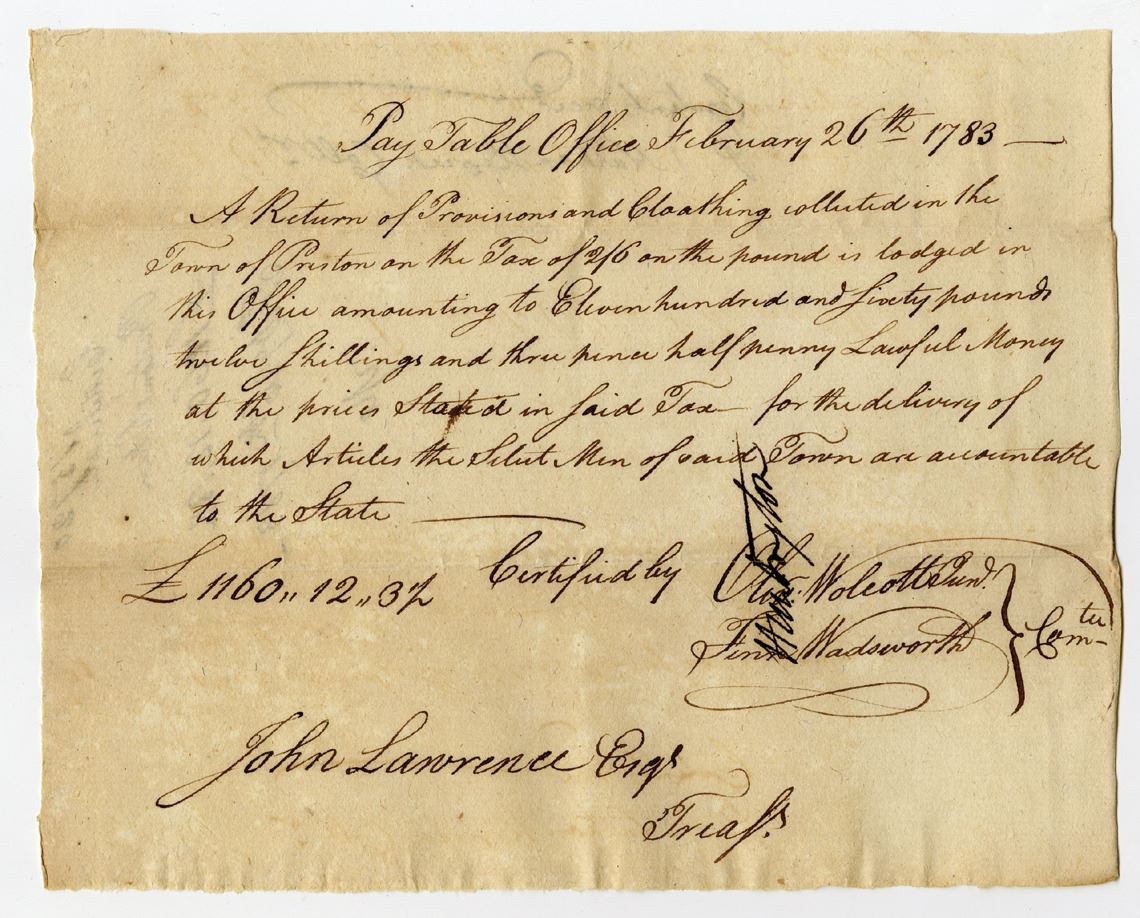 Pay Table Office February 26th 1783
A Return of Provisions and Cloathing collected in the
Town of Preston on the Tax of 2/6 on the pound is lodged in
this Office amounting to Eleven hundred and sixty pounds
twelve shillings and three pence half penny Lawful Money
at the prices Stated in said Tax — for the delivery of
which Articles the Select Men of said Town are accountable
to the State
£1160,, 12,, 3½ Certified by
Olivr. Wolcott Junr.
Fenn Wadsworth
Comtee
John Lawrence Esqr
Treasr.